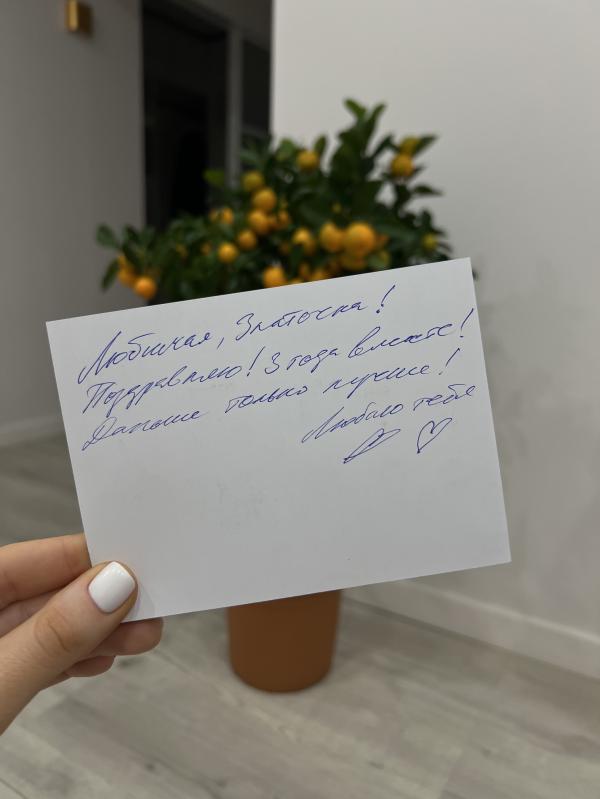 Любимая, Златочка!
Поздравляю! 3 года вместе!
Дальше только лучше!
Люблю тебя